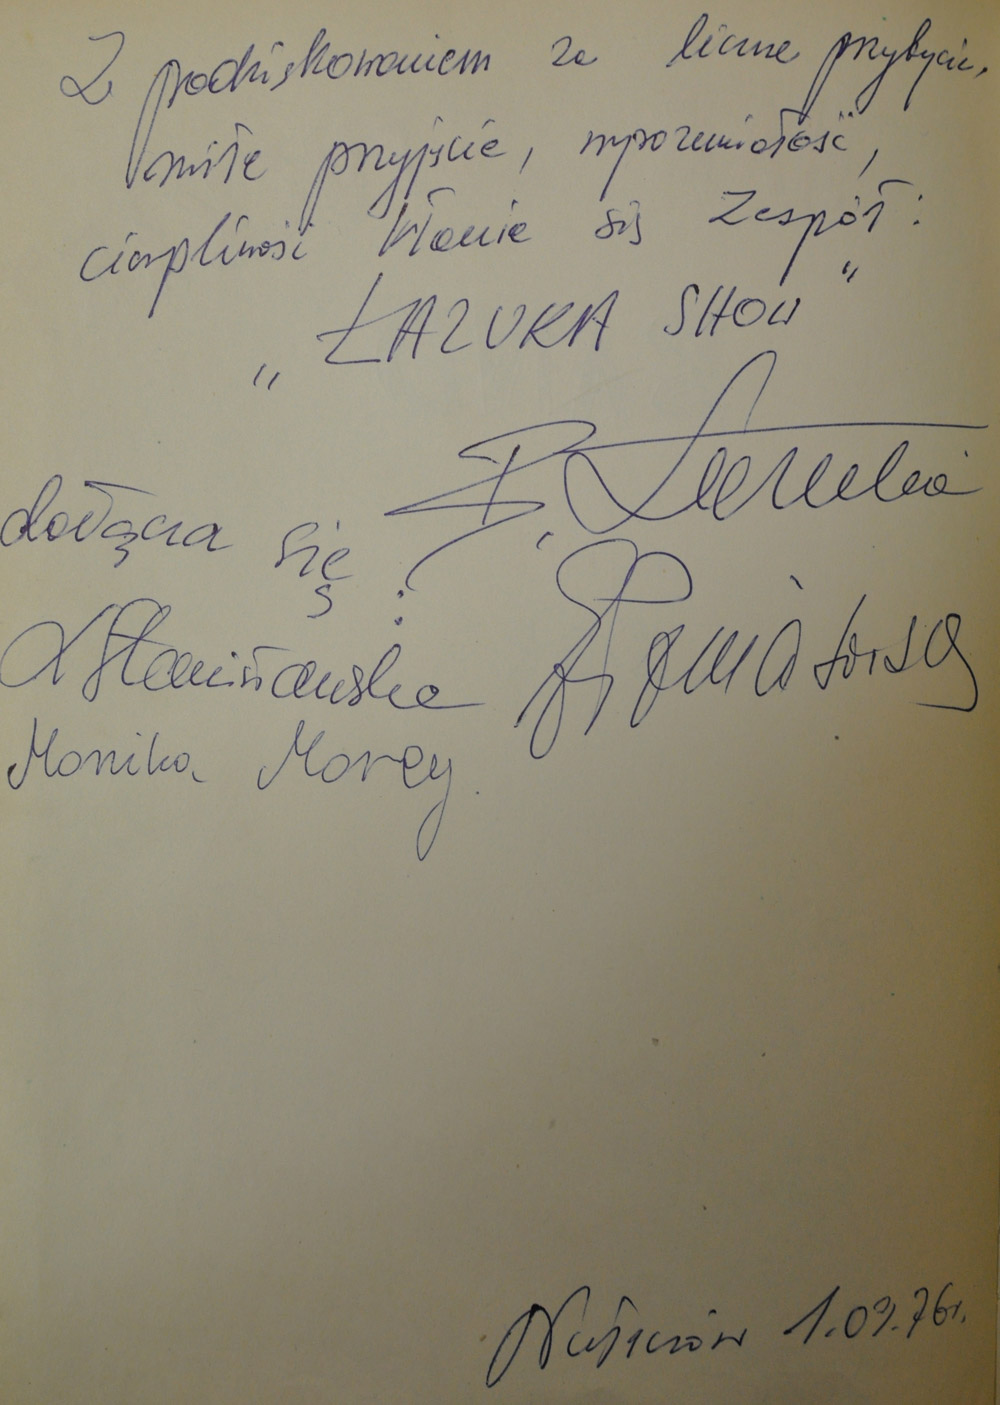 Z podziękowaniem za liczne przybycie,
miłe przyjęcie, wyrozumiałość,
cierpliwość kłania się Zespół:
„ŁAZUKA SHOW"
dołącza się:
Stanisławska
Monika Morey
1.09.76r.